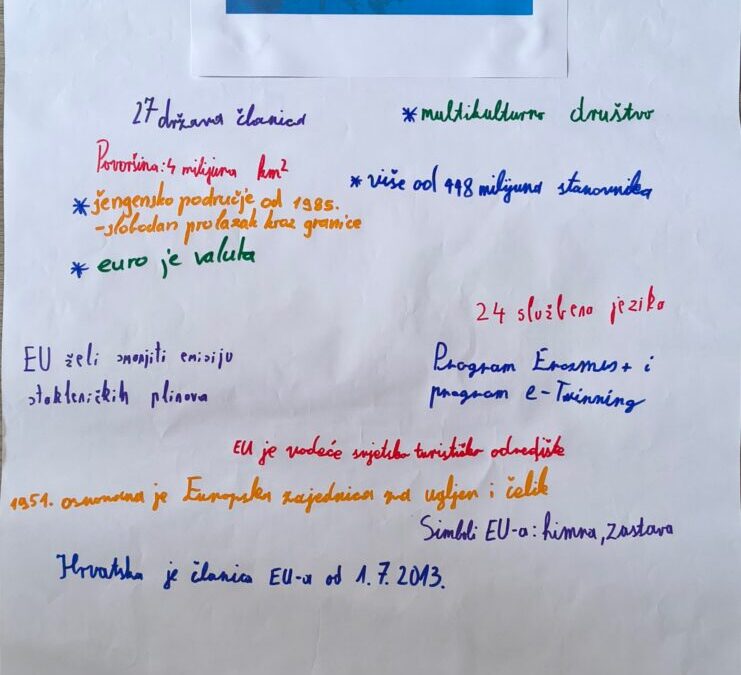 27 država članica
* multikulturno društvo
Površina: 4 milijuna km²
* više od 448 milijuna stanovnika
* šengensko područje od 1985.
-slobodan prolazak kroz granice
* euro je valuta
24 službena jezika
EU želi smanjiti emisiju
stakleničkih plinova
Program Erasmus+ i
program e-Twinning
EU je vodeće svjetsko turističko odredište
1951. osnovana je Europska zajednica za ugljen i čelik
Simboli EU-a: himna, zastava
Hrvatska je članica EU-a od 1. 7. 2013.